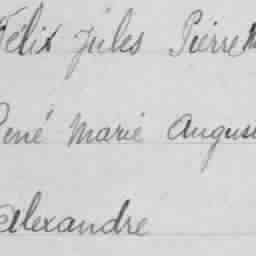 Félix Jules Pierre
René Marie August
Alexandre